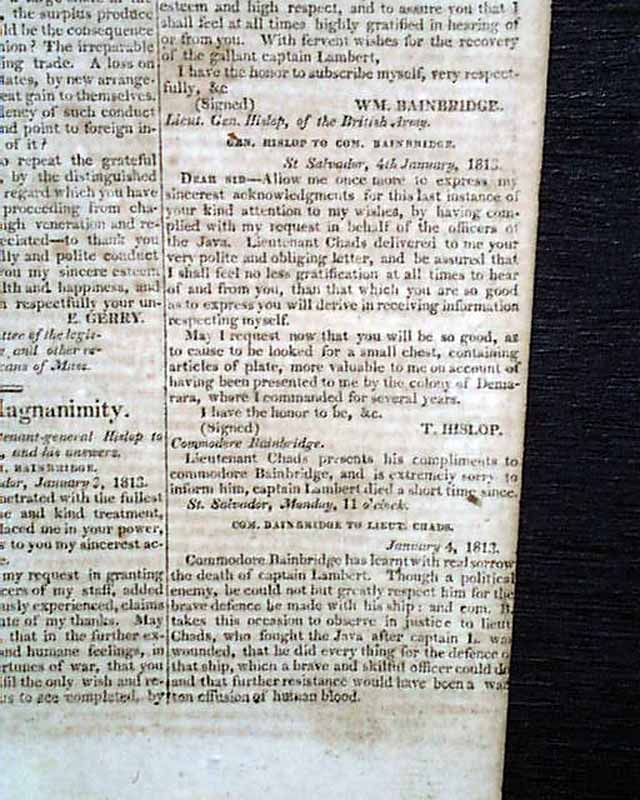 the surplus produce
ld be the consequence
nion? The irreparable
ing trade. A loss on
ates, by new arrange-
eat gain to themselves.
iency of such conduct
nd point to foreign in-
of it?
o repeat the grateful
, by the distinguished
regard which you have
proceeding from cha-
igh veneration and re-
eciated—to thank you
lly and polite conduct
ou my sincere esteem
lth and happiness, and
n respectfully your un-
E. GERRY.
ttee of the legis-
e, and other re-
icans of Mass.
Magnanimity.
tenant-general Hislop to
, and his answers.
M. BAINBRIDGE.
dor, January 3, 1813.
netrated with the fullest
se and kind treatment,
laced me in your power,
s to you my sincerest ac-
e.
my request in granting
cers of my staff, added
usly experienced, claims
ute of my thanks. May
, that in the further ex-
and humane feelings, in
rtunes of war, that you
fil the only wish and re-
us to see completed, by
esteem and high respect, and to assure you that I
shall feel at all times highly gratified in hearing of
or from you. With fervent wishes for the recovery
of the gallant captain Lambert,
I have the honor to subscribe myself, very respect-
fully, &c
(Signed) WM. BAINBRIDGE.
Lieut. Gen. Hislop, of the British Army.
GEN. HISLOP TO COM. BAINBRIDGE.
St Salvador, 4th January, 1813.
DEAR SIR—Allow me once more to express my
sincerest acknowledgments for this last instance of
your kind attention to my wishes, by having com-
plied with my request in behalf of the officers of
the Java. Lieutenant Chads delivered to me your
very polite and obliging letter, and be assured that
I shall feel no less gratification at all times to hear
of and from you, than that which you are so good
as to express you will derive in receiving information
respecting myself.
May I request now that you will be so good, as
to cause to be looked for a small chest, containing
articles of plate, more valuable to me on account of
having been presented to me by the colony of Dema-
rara, where I commanded for several years.
I have the honor to be, &c.
(Signed) T. HISLOP.
Commodore Bainbridge.
Lieutenant Chads presents his compliments to
commodore Bainbridge, and is extremely sorry to
inform him, captain Lambert died a short time since.
St. Salvador, Monday, 11 o'clock.
COM. BAINBRIDGE TO LIEUT. CHADS.
January 4, 1813.
Commodore Bainbridge has learnt with real sorrow
the death of captain Lambert. Though a political
enemy, he could not but greatly respect him for the
brave defence he made with his ship: and com. B.
takes this occasion to observe in justice to lieut.
Chads, who fought the Java after captain L. was
wounded, that he did every thing for the defence of
that ship, which a brave and skilful officer could do
and that further resistance would have been a wan
ton effusion of human blood.